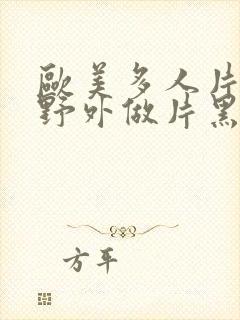 歐美多人片
野外做片黑
方平